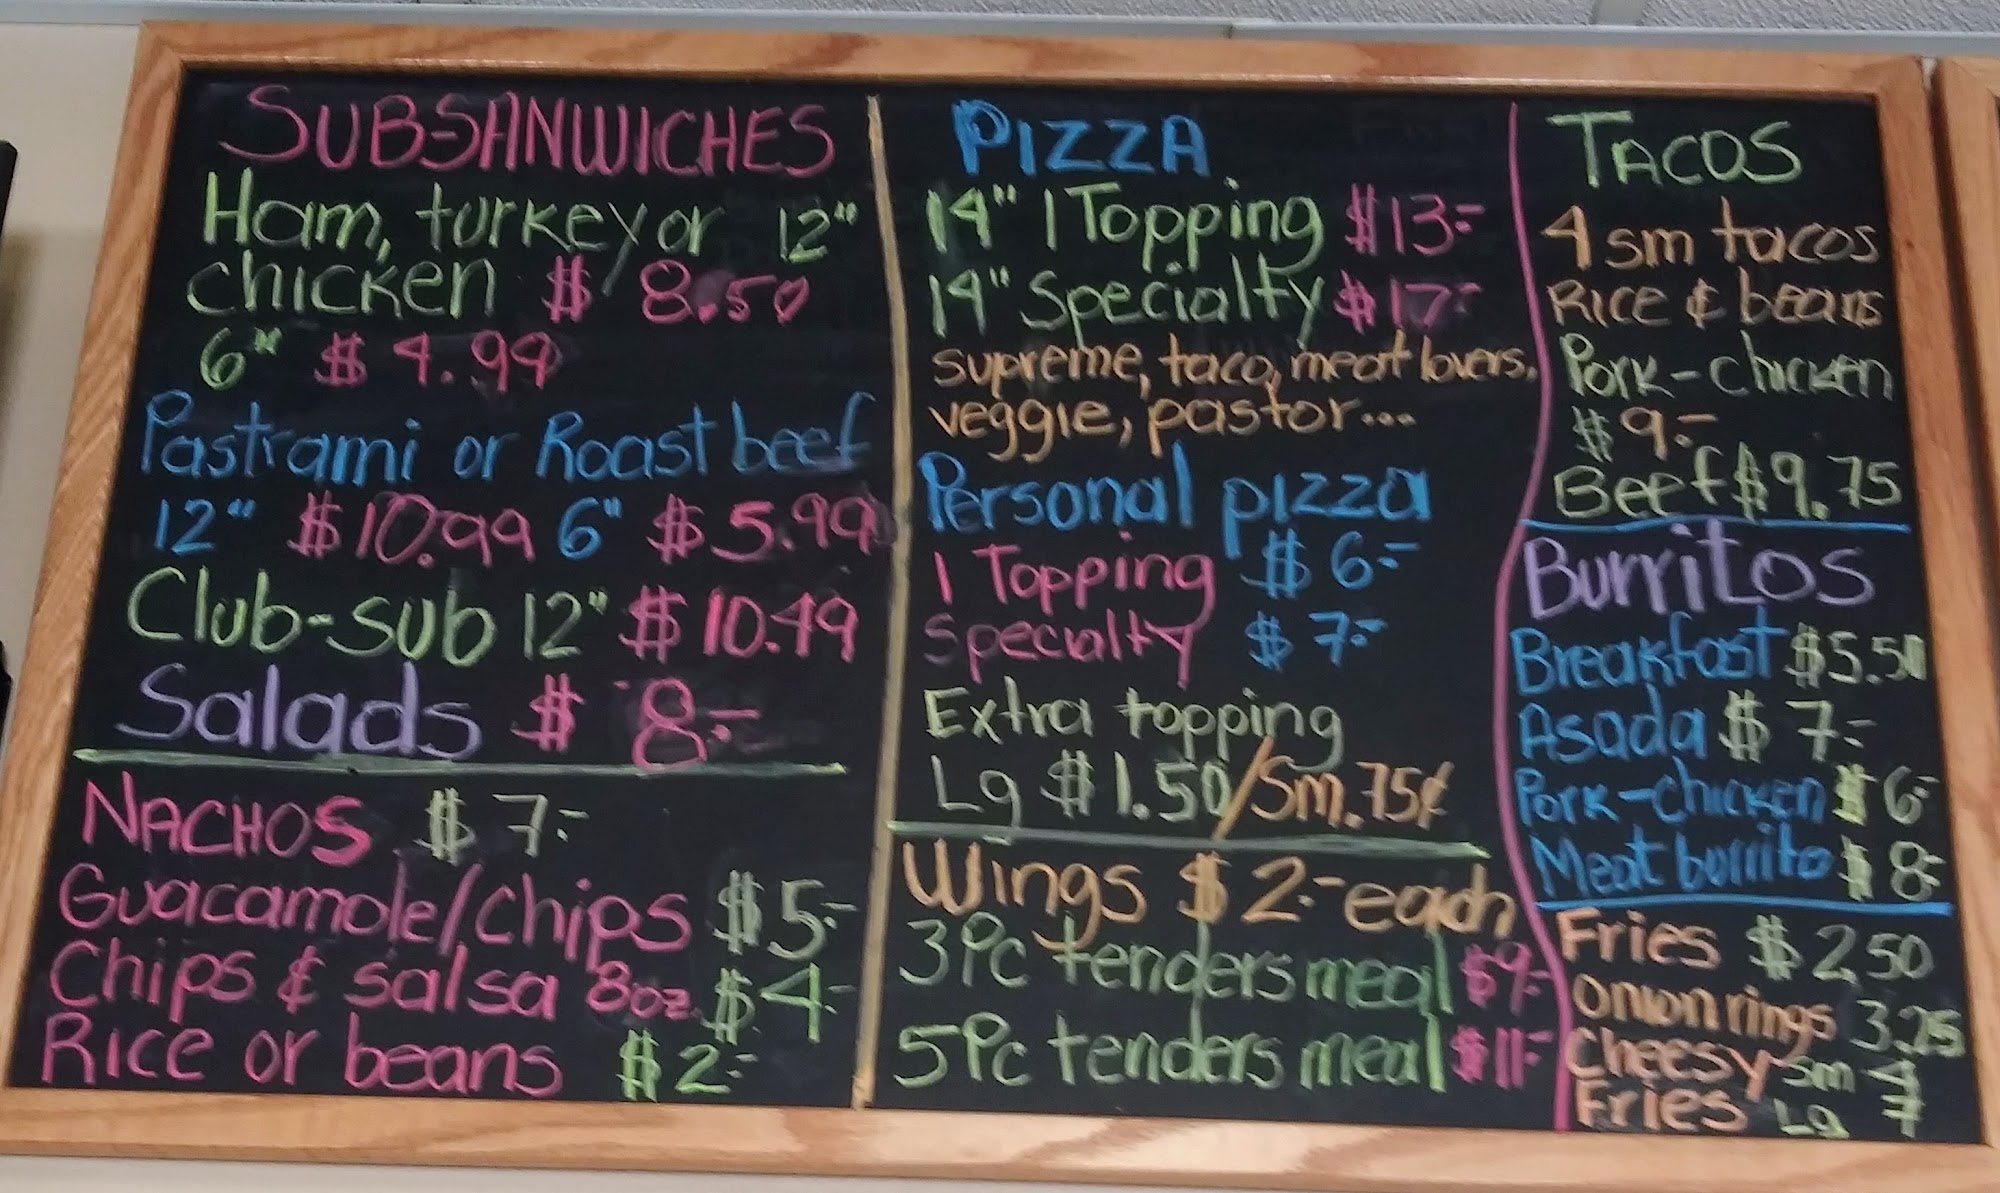 SUB-SANWICHES
Ham, turkey or 12"
chicken $ 8.50
6" $ 4.99
Pastrami or Roast beef
12" $10.99 6" $5.99
Club-sub 12" $10.49
Salads $ 8.-
NACHOS $ 7.-
Guacamole/chips $5.-
Chips & salsa 8oz. $4.-
Rice or beans $2.-
PIZZA
14" 1 Topping $13.-
14" Specialty $17.-
supreme, taco, meat lovers,
veggie, pastor...
Personal pizza
1 Topping $6.-
Specialty $7.-
Extra topping
Lg $1.50/Sm.75¢
Wings $2.- each
3Pc tenders meal $9.-
5Pc tenders meal $11.-
TACOS
4 sm tacos
Rice & beans
Pork-chicken
$9.-
Beef $9.75
Burritos
Breakfast $5.50
Asada $7.-
Pork-chicken $6.-
Meat burrito $8.-
Fries $2.50
Onion rings 3.25
Cheesy sm 4
Fries Lg 7